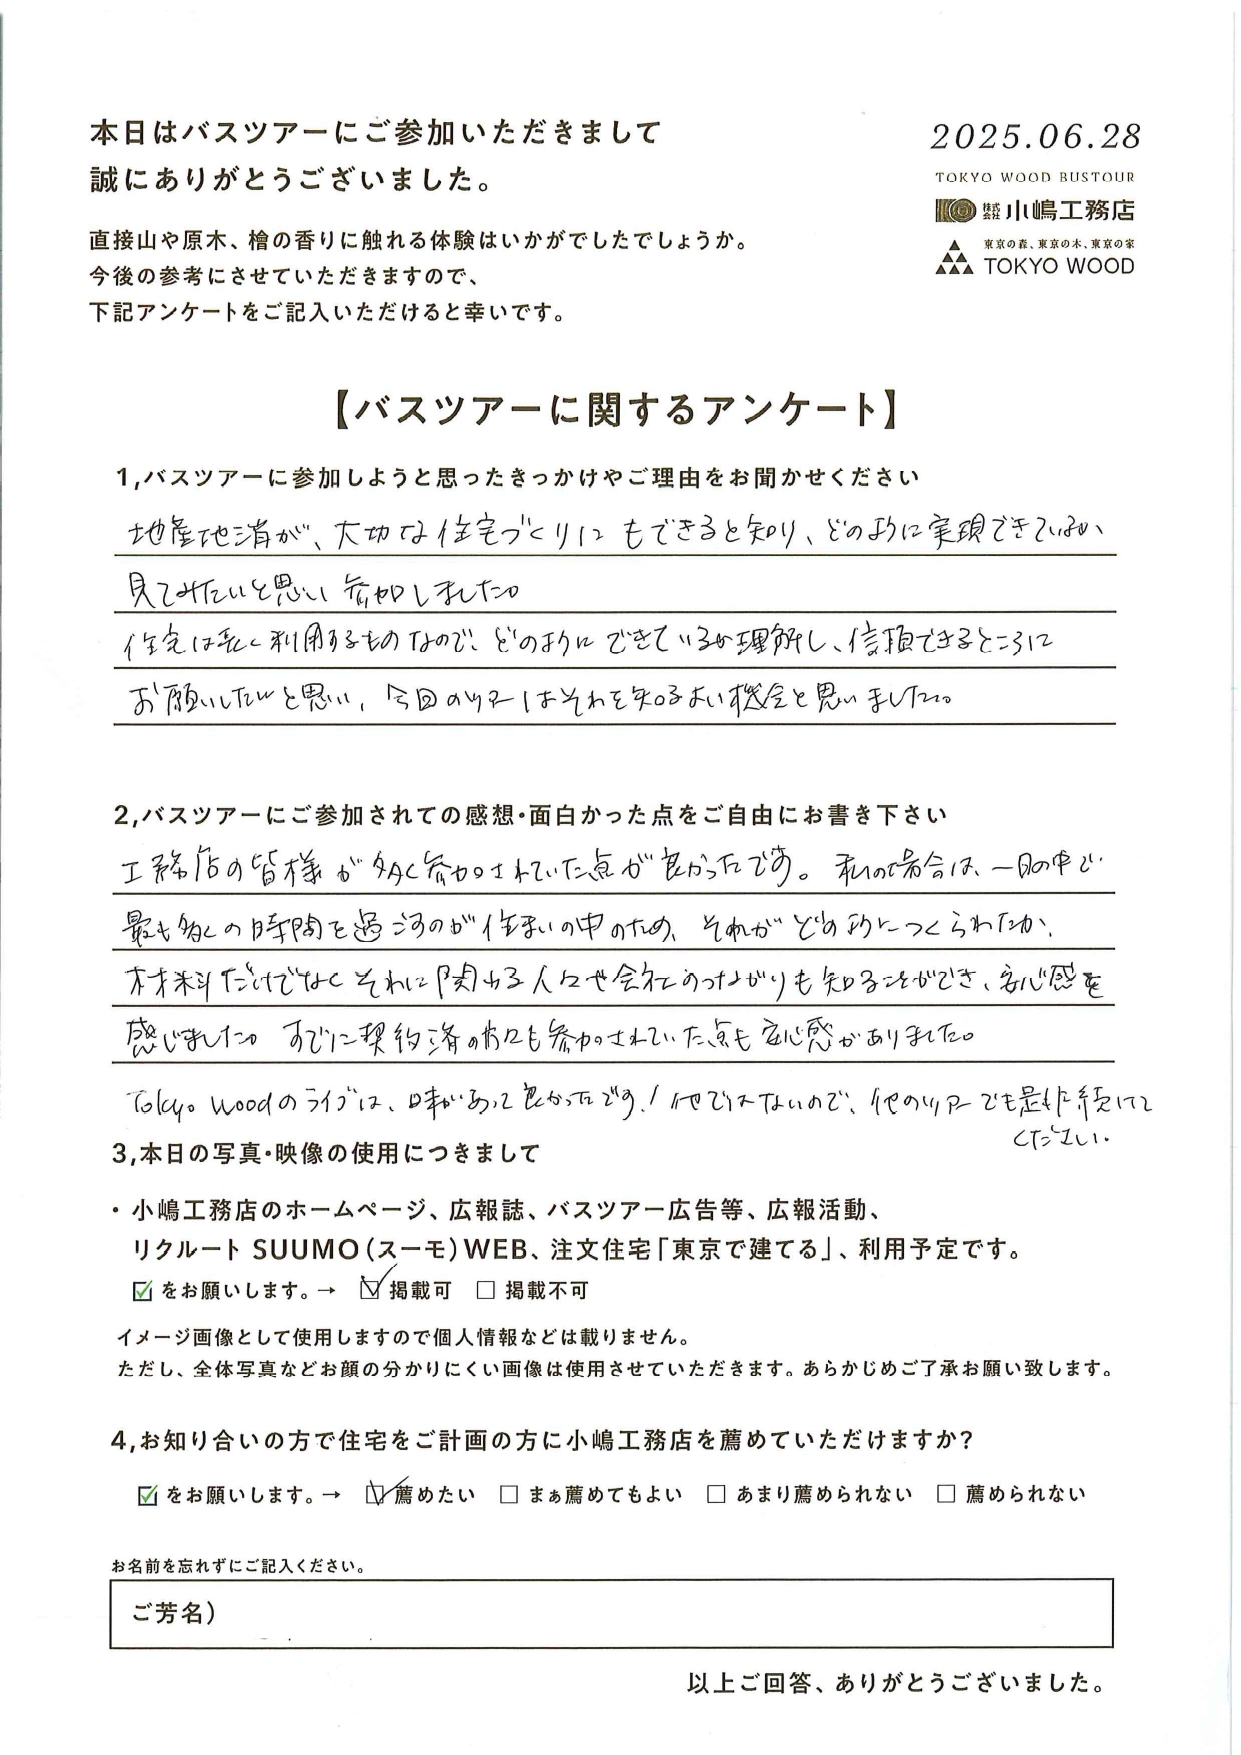 本日はバスツアーにご参加いただきまして
誠にありがとうございました。
2025.06.28
TOKYO WOOD BUSTOUR
株式会社 小嶋工務店
東京の森、東京の木、東京の家
TOKYO WOOD
直接山や原木、檜の香りに触れる体験はいかがでしたでしょうか。
今後の参考にさせていただきますので、
下記アンケートをご記入いただけると幸いです。
【バスツアーに関するアンケート】
1,バスツアーに参加しようと思ったきっかけやご理由をお聞かせください
地産地消が、大切な住宅づくりにもできると知り、どのように実現できているか
見てみたいと思い参加しました。
住宅は長く利用するものなので、どのようにできているか理解し、信頼できるところに
お願いしたいと思い、今回のツアーはそれを知るよい機会と思いました。
2,バスツアーにご参加されての感想・面白かった点をご自由にお書き下さい
工務店の皆様が多く参加されていた点が良かったです。私の場合は、一日の中で
最も多くの時間を過ごすのが住まいの中のため、それがどのようにつくられたか、
材料だけでなくそれに関わる人々や会社のつながりも知ることができ、安心感を
感じました。すでに契約済の方々も参加されていた点も安心感がありました。
Tokyo Woodのライブは、味があって良かったです!他ではないので、他のツアーでも是非続けて
ください。
3,本日の写真・映像の使用につきまして
・小嶋工務店のホームページ、広報誌、バスツアー広告等、広報活動、
リクルート SUUMO(スーモ)WEB、注文住宅「東京で建てる」、利用予定です。
☑ をお願いします。→ ☑ 掲載可 □ 掲載不可
イメージ画像として使用しますので個人情報などは載りません。
ただし、全体写真などお顔の分かりにくい画像は使用させていただきます。あらかじめご了承お願い致します。
4,お知り合いの方で住宅をご計画の方に小嶋工務店を薦めていただけますか?
☑ をお願いします。→ ☑ 薦めたい □ まぁ薦めてもよい □ あまり薦められない □ 薦められない
お名前を忘れずにご記入ください。
ご芳名)
以上ご回答、ありがとうございました。